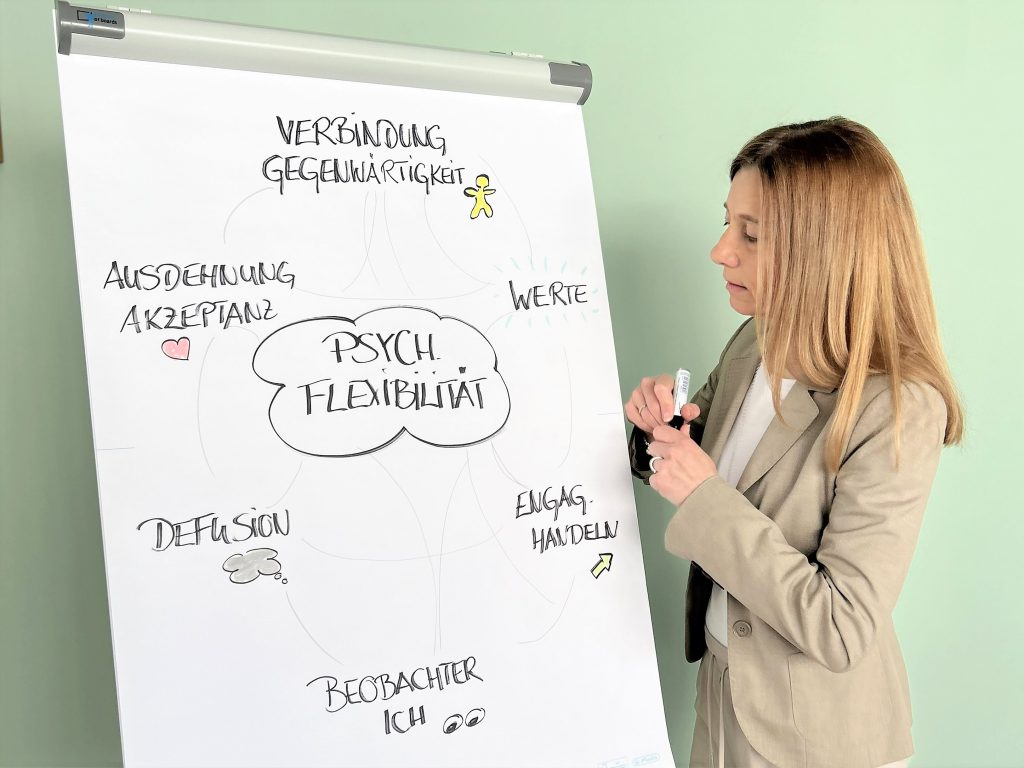 VERBINDUNG
GEGENWÄRTIGKEIT
AUSDEHNUNG
AKZEPTANZ
WERTE
PSYCH.
FLEXIBILITÄT
DEFUSION
ENGAG.
HANDELN
BEOBACHTER
ICH